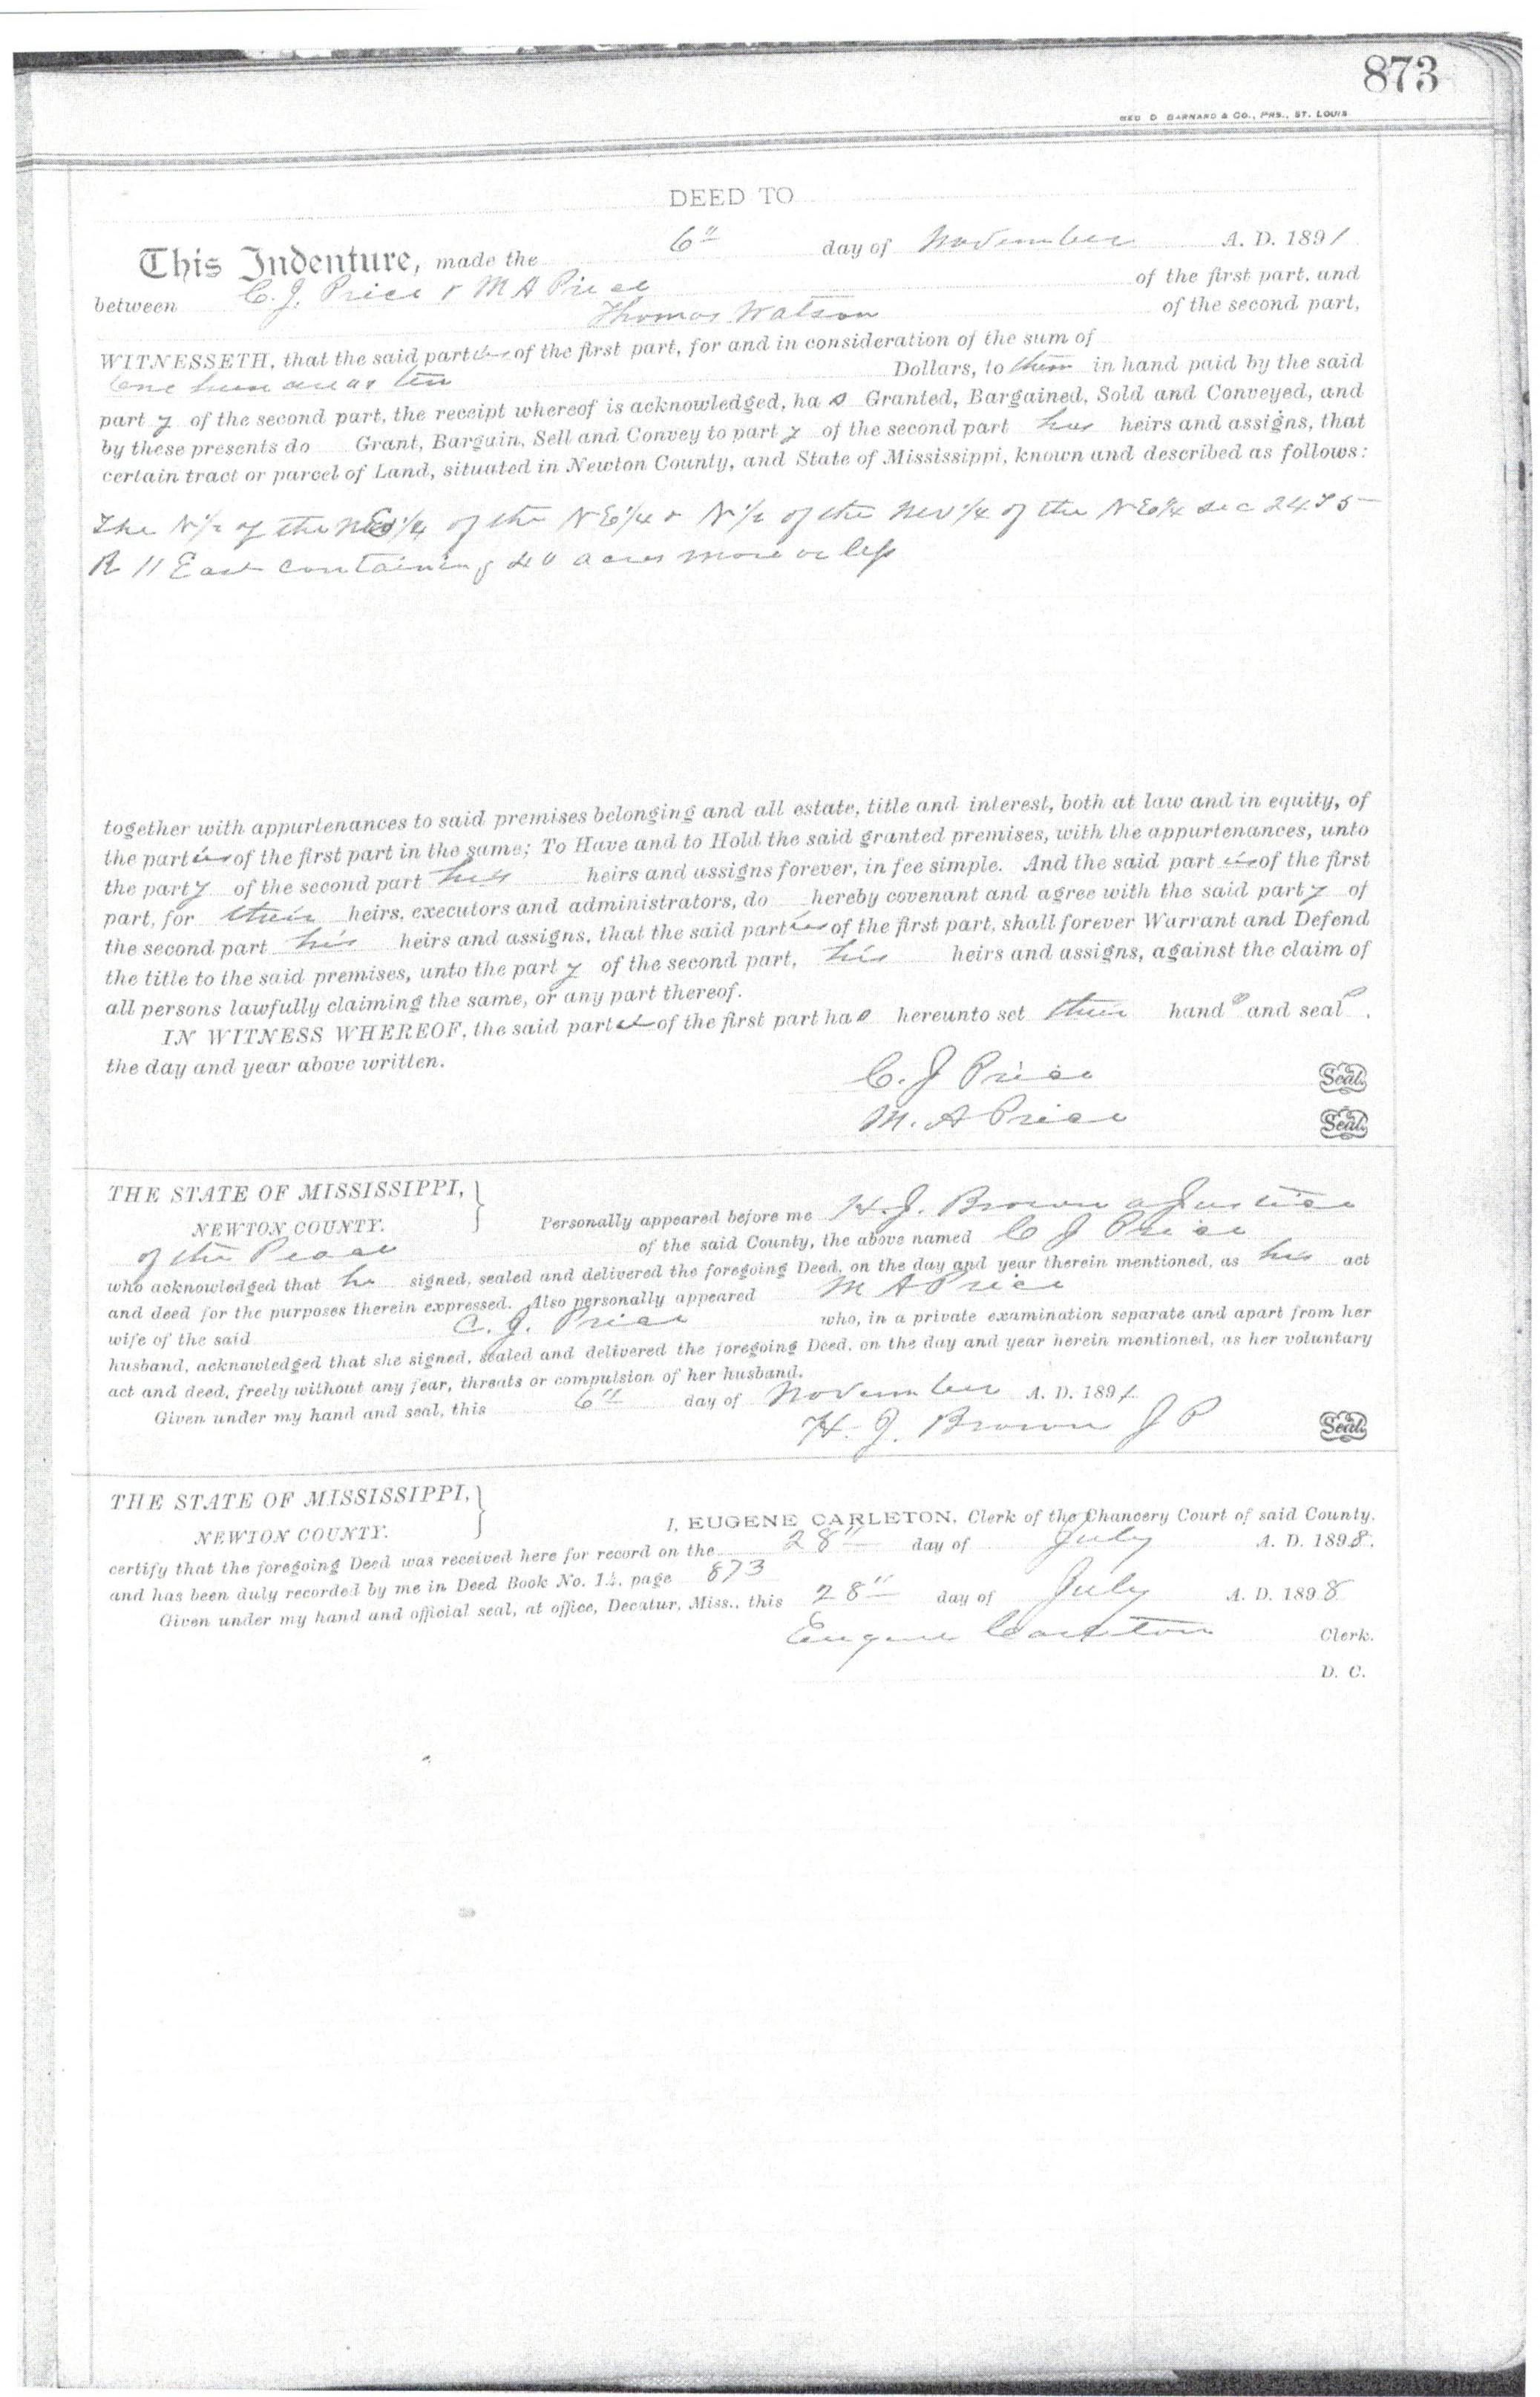 873
GEO D BARNARD & CO., PRS., ST. LOUIS
DEED TO
This Indenture, made the 6" day of November A. D. 1891
between C. J. Price & M A Price of the first part, and
Thomas Watson of the second part,
WITNESSETH, that the said parties of the first part, for and in consideration of the sum of
One hundred & ten Dollars, to them in hand paid by the said
party of the second part, the receipt whereof is acknowledged, has Granted, Bargained, Sold and Conveyed, and
by these presents do Grant, Bargain, Sell and Convey to party of the second part his heirs and assigns, that
certain tract or parcel of Land, situated in Newton County, and State of Mississippi, known and described as follows:
The N 1/2 of the NE 1/4 of the NE 1/4 & N 1/2 of the NW 1/4 of the NE 1/4 sec 24 T 5
R 11 East containing 40 acres more or less
together with appurtenances to said premises belonging and all estate, title and interest, both at law and in equity, of
the parties of the first part in the same; To Have and to Hold the said granted premises, with the appurtenances, unto
the party of the second part his heirs and assigns forever, in fee simple. And the said parties of the first
part, for their heirs, executors and administrators, do hereby covenant and agree with the said party of
the second part his heirs and assigns, that the said parties of the first part, shall forever Warrant and Defend
the title to the said premises, unto the party of the second part, his heirs and assigns, against the claim of
all persons lawfully claiming the same, or any part thereof.
IN WITNESS WHEREOF, the said parties of the first part has hereunto set their hands and seals,
the day and year above written.
C. J Price Seal
M. A Price Seal
THE STATE OF MISSISSIPPI, }
NEWTON COUNTY.
Personally appeared before me H. J. Brown a Justice
of the Peace of the said County, the above named C J Price
who acknowledged that he signed, sealed and delivered the foregoing Deed, on the day and year therein mentioned, as his act
and deed for the purposes therein expressed. Also personally appeared M A Price
wife of the said C. J. Price who, in a private examination separate and apart from her
husband, acknowledged that she signed, sealed and delivered the foregoing Deed, on the day and year herein mentioned, as her voluntary
act and deed, freely without any fear, threats or compulsion of her husband.
Given under my hand and seal, this 6" day of November A. D. 1891.
H. J. Brown J P Seal
THE STATE OF MISSISSIPPI, }
NEWTON COUNTY.
I, EUGENE CARLETON, Clerk of the Chancery Court of said County,
certify that the foregoing Deed was received here for record on the 28" day of July A. D. 1898.
and has been duly recorded by me in Deed Book No. 14, page 873
Given under my hand and official seal, at office, Decatur, Miss., this 28" day of July A. D. 1898
Eugene Carleton Clerk.
D. C.